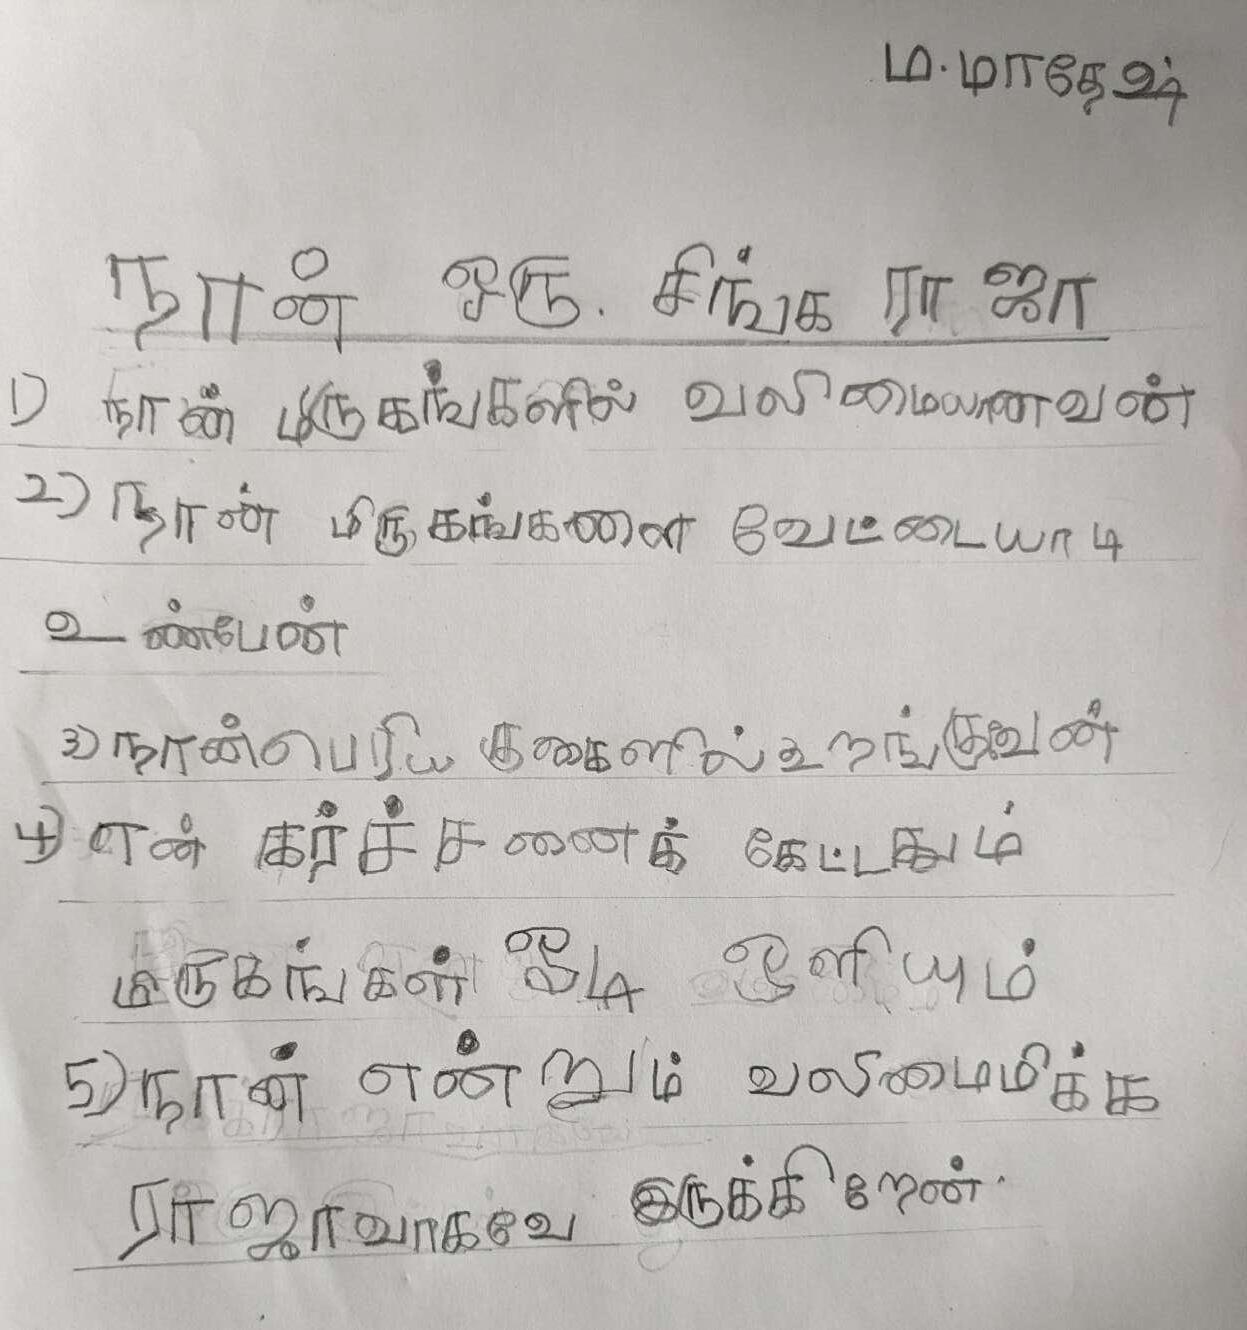 ம.மாதேஷ்
நான் ஒரு. சிங்க ராஜா
1) நான் மிருகங்களில் வலிமையானவன்
2) நான் மிருகங்களை வேட்டையாடி
உண்பேன்
3) நான் பெரிய குகைளில் உறங்குவேன்
4) என் கர்ச்சனைக் கேட்டதும்
மிருகங்கள் ஓடி ஒளியும்
5) நான் என்றும் வலிமைமிக்க
ராஜாவாகவே இருக்கிறேன்.